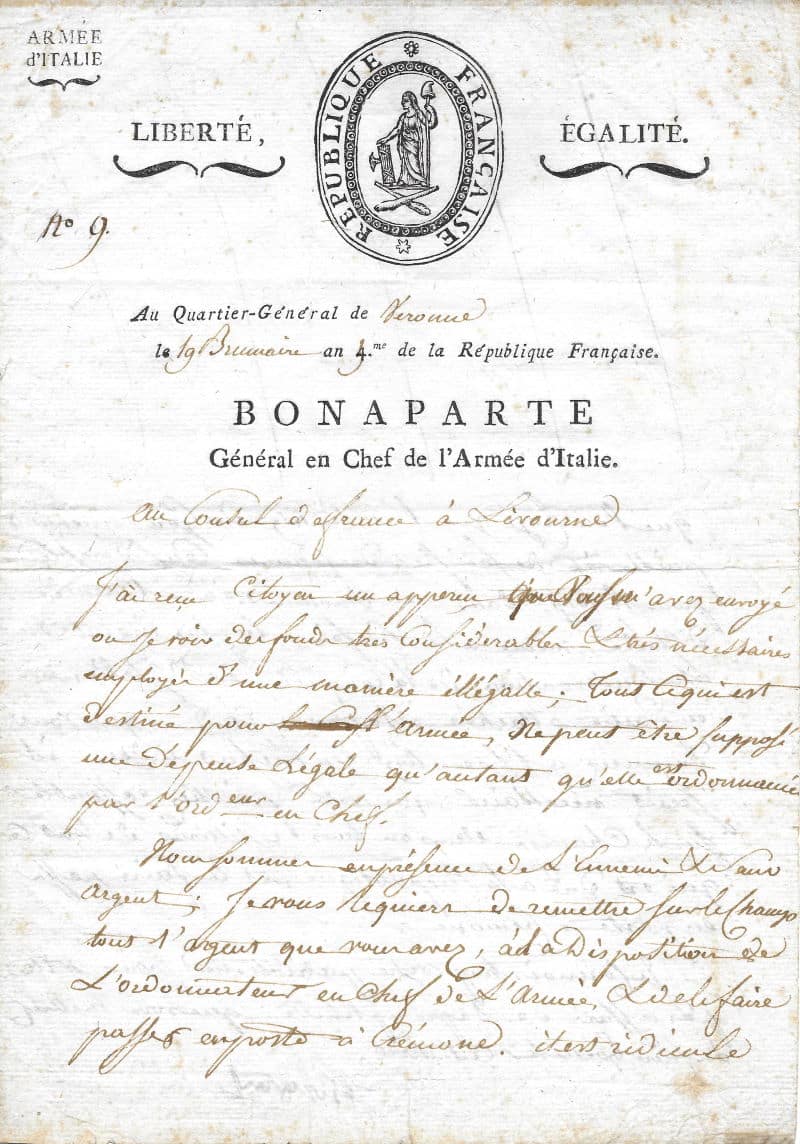 ARMÉE
d'ITALIE
LIBERTÉ,
RÉPUBLIQUE FRANÇAISE
ÉGALITÉ.
No 9.
Au Quartier-Général de Veronne
le 19 Brumaire an 5 .me de la République Française.
BONAPARTE
Général en Chef de l'Armée d'Italie.
au Consul de france à Livourne
J'ai recu Citoyen un apperçu que Vous m'avez envoyé
ou Je vois des fonds tres Considérables & trés nécessaires
employés d'une manière illégalle; Tout Cequi est
destiné pour l'armée, Ne peut être supposé
une dépense Légale qu'autant qu'elle est ordonnancée
par l'ordeur en Chef.
Nous sommes en présence de L'Ennemi & sans
argent; Je vous requiers de remettre sur le Champ
tout l'argent que vous avez, à la Disposition de
L'ordonnateur en Chef de L'Armée, & de le faire
passer en poste à Crémone. il est ridicule